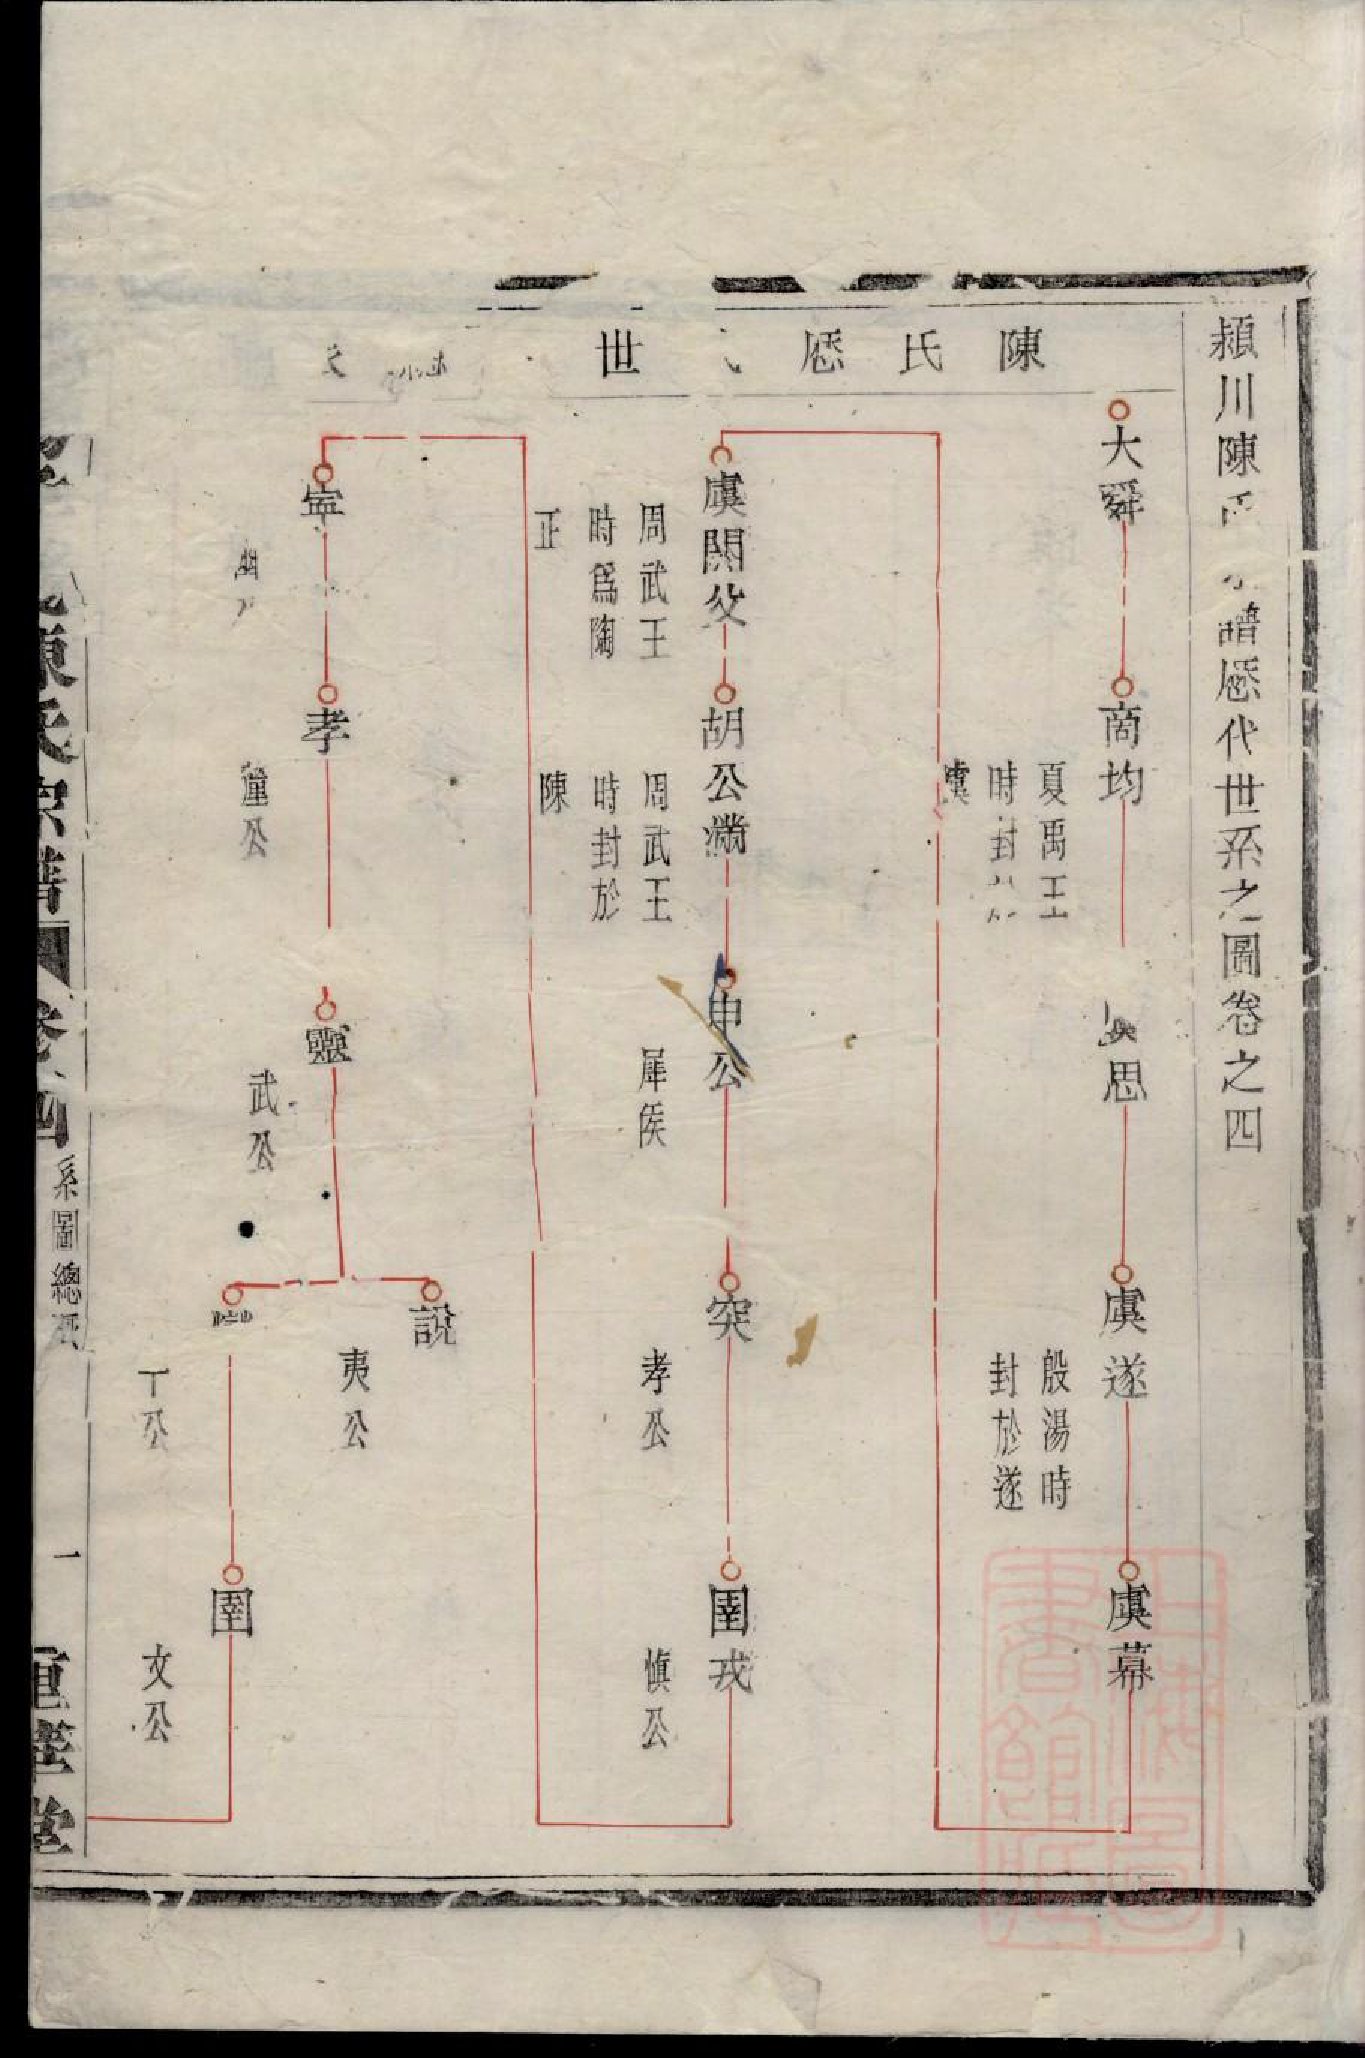 潁川陳氏譜歷代世系之圖卷之四
陳氏歷世
大舜
商均
夏禹王
時封於
虞
思
虞遂
殷湯時
封於遂
虞幕
虞閼父
周武王
時為陶
正
胡公滿
周武王
時封於
陳
申公
犀侯
突
孝公
圉戎
慎公
寧
孝
釐公
靈
武公
說
夷公
公
圉
文公
陳氏宗譜
卷四
系圖總
一
重華堂
上海圖書館藏